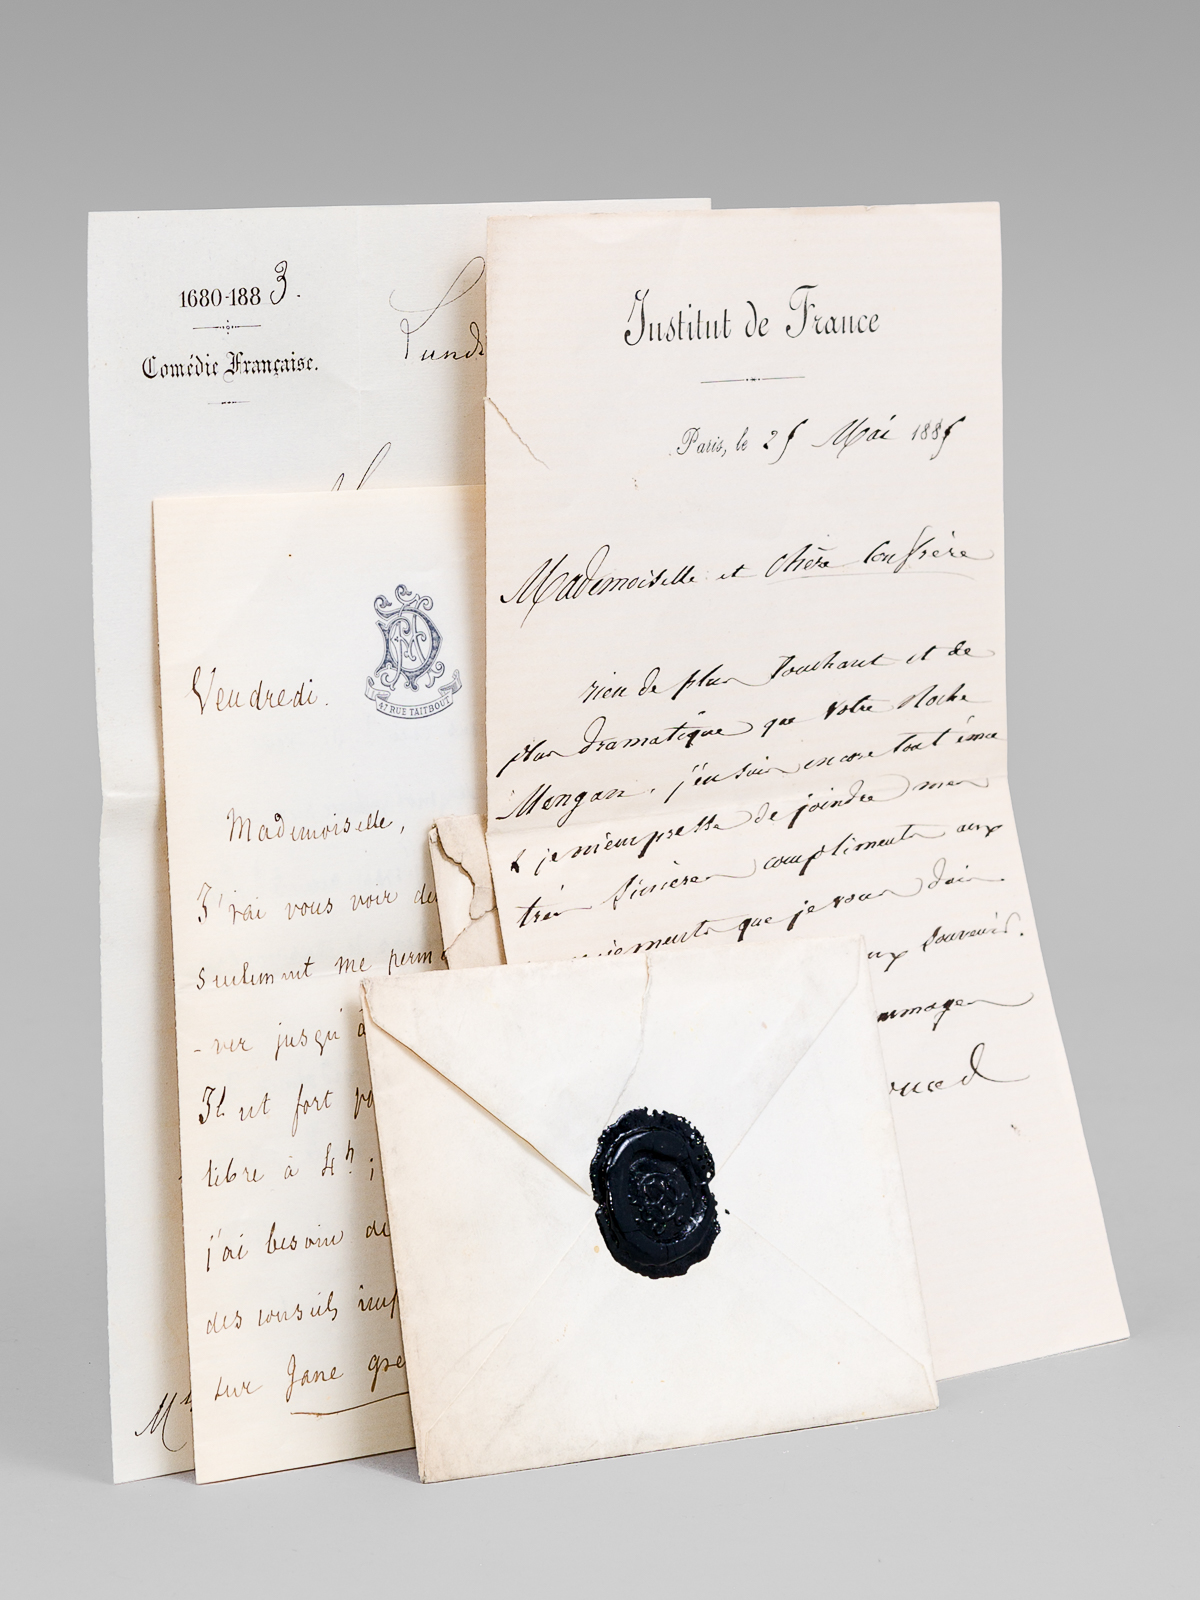 1680-1883.
Comédie Française.
Lundi
Institut de France
Paris, le 25 Mai 1885
Mademoiselle et chère Confrère
rien de plus touchant et de
plus dramatique que votre Roche
Mongan. j'en suis encore tout ému
& je m'empresse de joindre mes
très sincères compliments aux
que je vous dois
souvenir.
Vendredi.
47 RUE TAITBOUT
Mademoiselle,
J'irai vous voir de
seulement me perm
-ver jusqu'à
Il est fort po
libre à 4h;
j'ai besoin de
des conseils
sur Jane gre